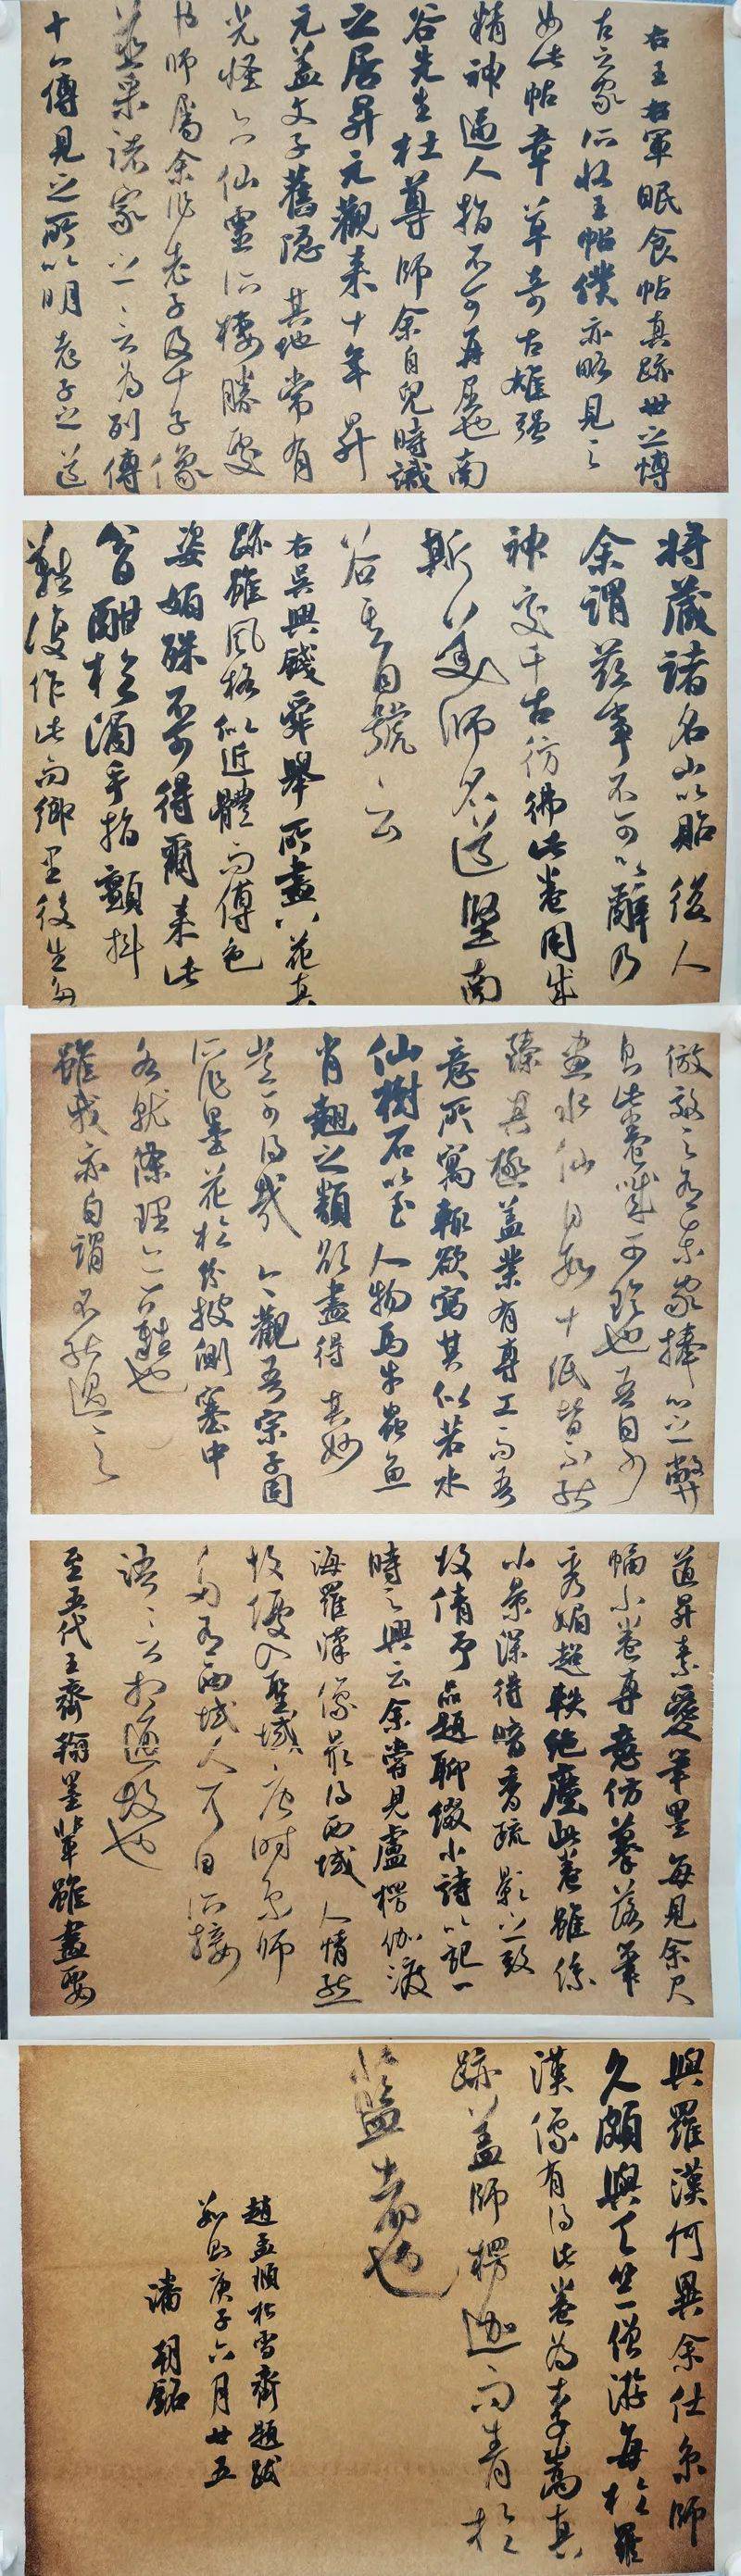 右王右軍眠食帖真跡世之博
古之家所收王帖僕亦略見之
如此帖章草奇古雄强
精神逼人指不可再屈也南
谷先生杜尊師余自兒時識
之居昇元觀来十年昇
元盖文子舊隐其地常有
光怪六仙靈所棲勝處
師屬余作老子及十子像
並采諸家之言為列傳
十一傳見之所以明老子之道
將藏諸名山以貽後人
余謂兹事不可以辭乃
神交千古彷彿此卷用成
斯美師名道堅南
谷其自號云
右吳興錢舜舉所畫八花真
跡雖風格似近體而傅色
姿媚殊不可得爾来此
公日酣於酒手指顫抖
難復作此而鄉里後生多
倣效之有東家捧心之弊
則此卷誠可珍也吾自少
畫水仙日数十紙皆不能
臻其極盖業有專工而吾
意所寓輒欲寫其似若水
仙樹石以至人物馬牛蟲魚
肖翹之類欲盡得其妙
豈可得哉今觀吾宗子固
所作墨花於紛披側塞中
各就條理亦一難也
雖我亦自謂不能過之
道昇素愛筆墨每見余尺
幅小卷專意仿摹落筆
秀媚超軼绝塵此卷雖係
小景深得暗香疏影之致
故倩予品題聊綴小詩以記一
時之興云余嘗見盧楞伽渡
海羅漢像最得西域人情態
故優入聖域唐時京師
多有西域人耳目所接
語言相通故也
至五代王齊翰輩雖畫要
與羅漢何異余仕京師
久頗與天竺僧游每於羅
漢像有得此卷為李嵩真
跡盖師楞迦而青於
藍者也
趙孟頫松雪齋題跋
歲則庚子六月廿五
潘朝銘